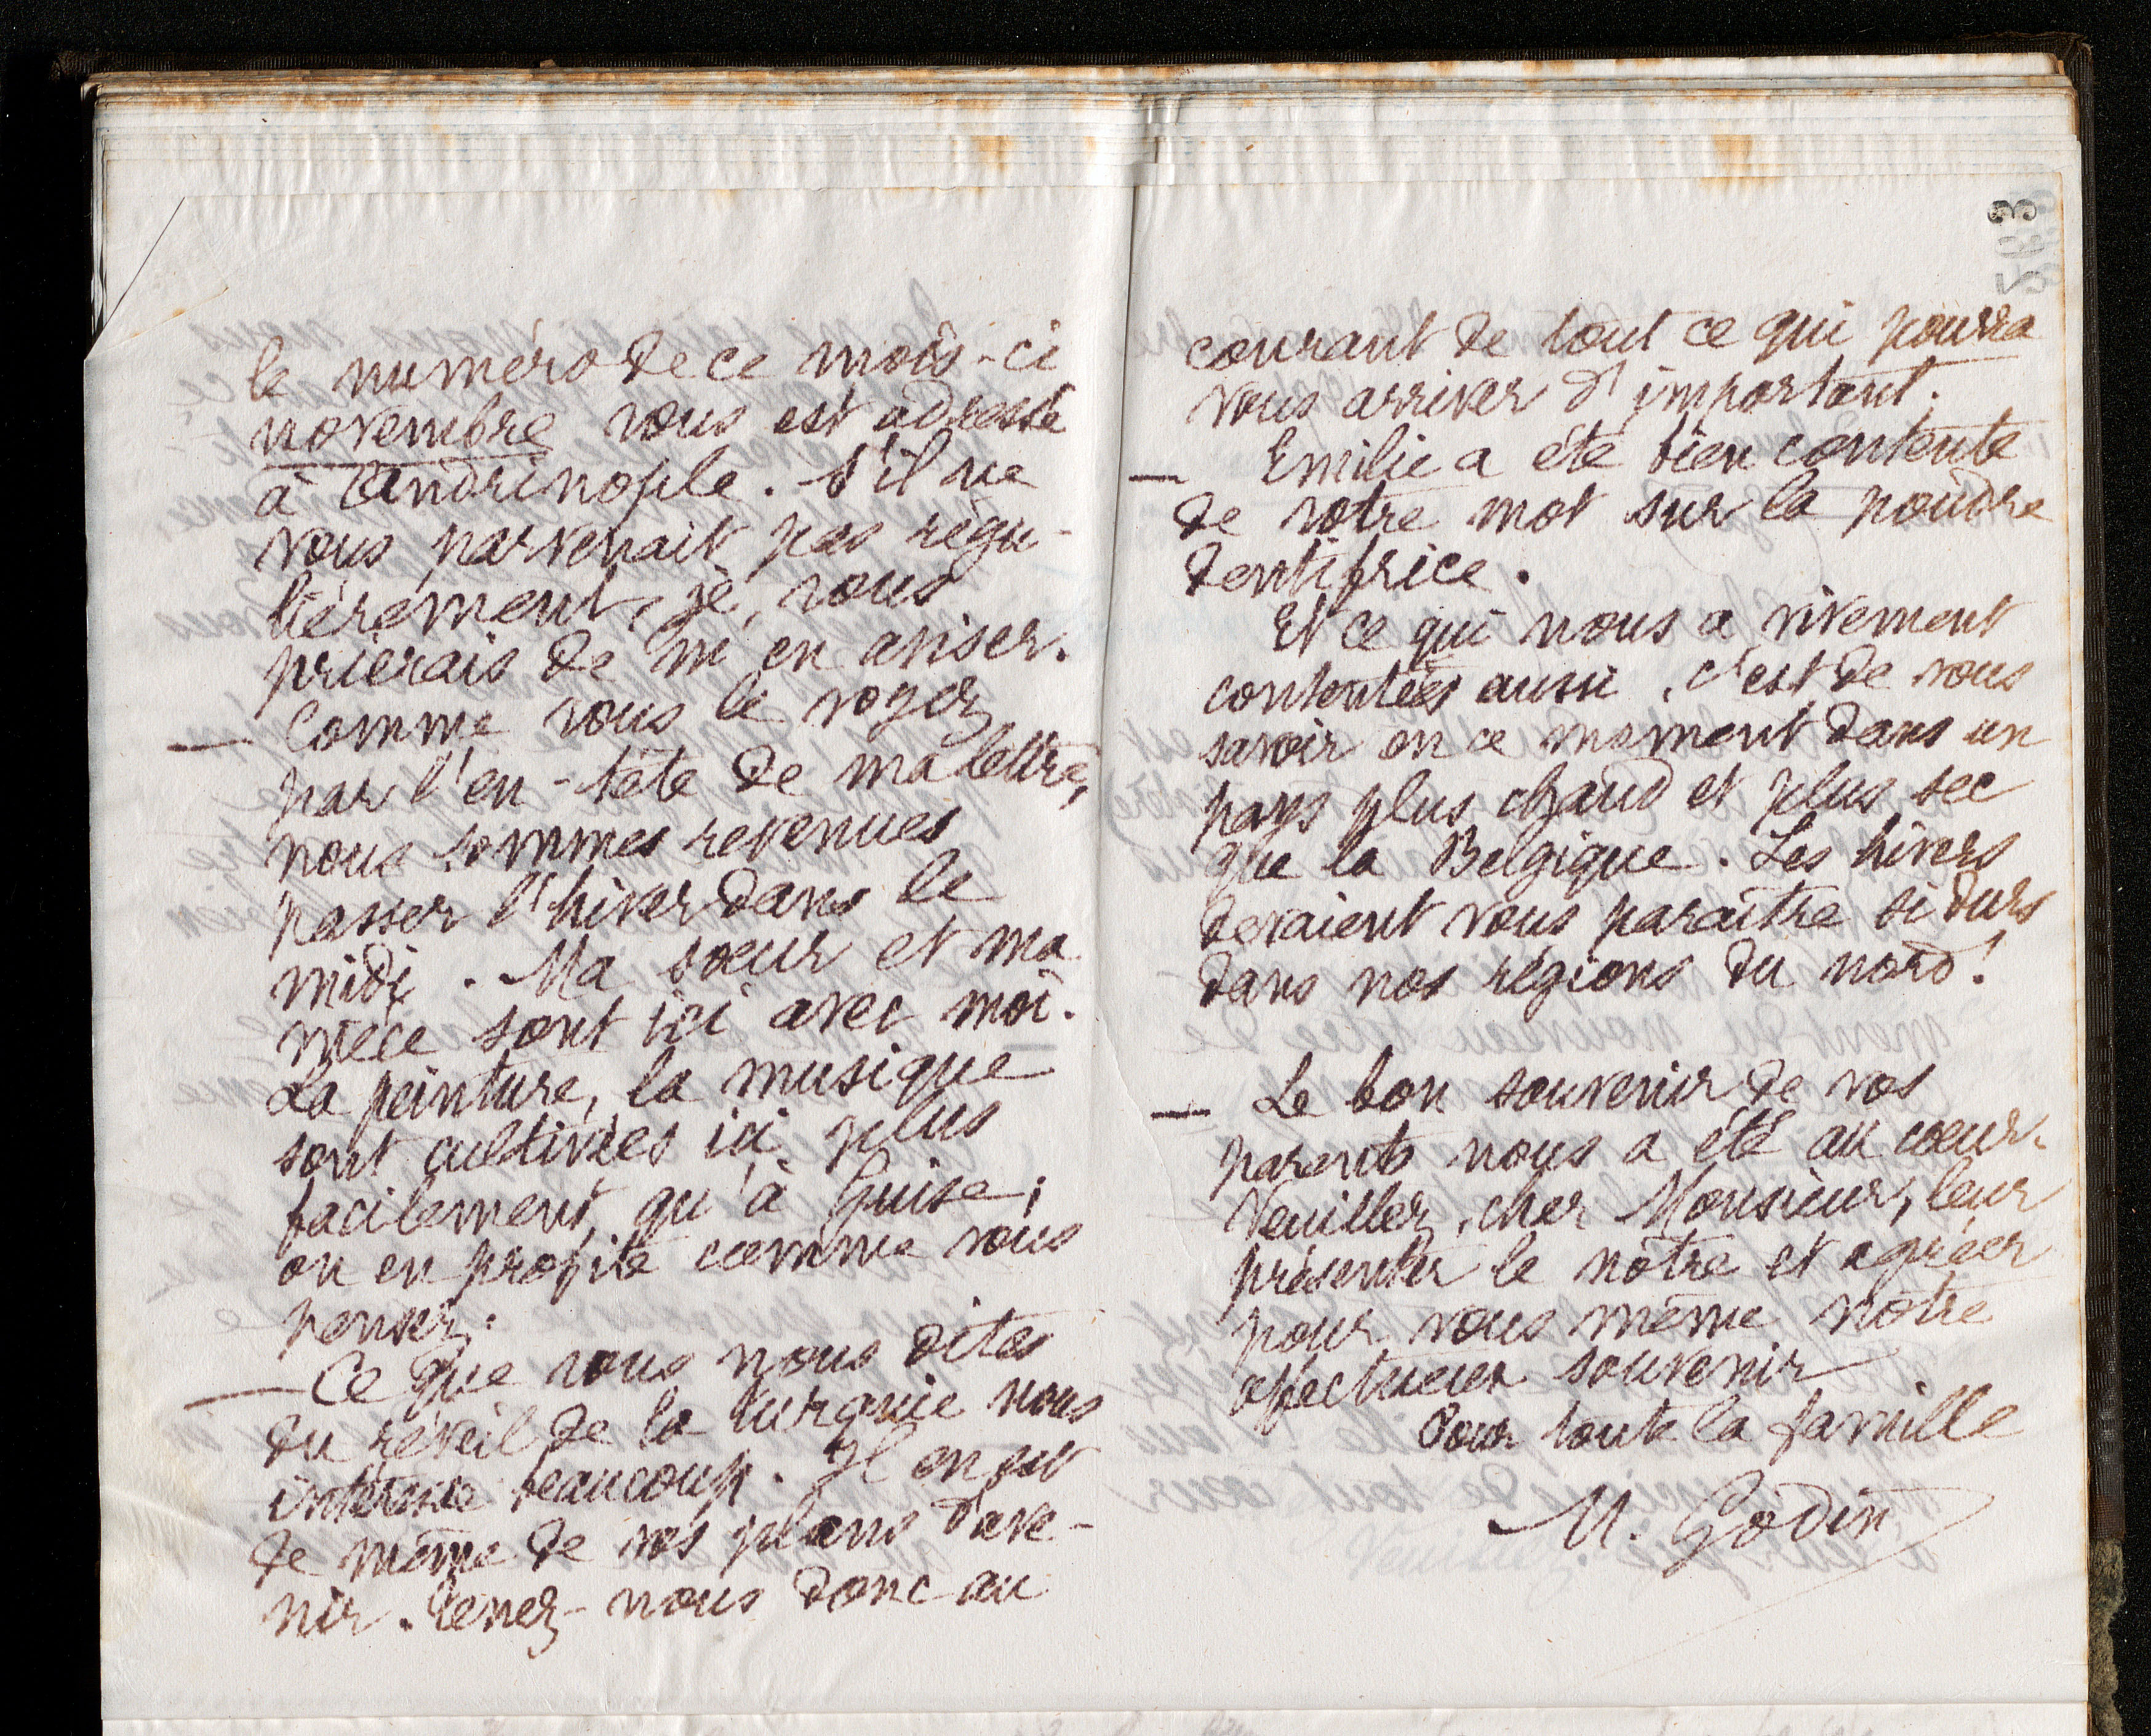 le numéro de ce mois-ci
novembre vous est adressé
à Andrinople. S'il ne
vous parvenait pas régu-
lièrement, je vous
prierais de m'en aviser.
— Comme vous le voyez
par l'en-tête de ma lettre,
nous sommes revenues
passer l'hiver dans le
midi. Ma sœur et ma
nièce sont ici avec moi.
La peinture, la musique
sont cultivées ici plus
facilement qu'à Guise;
on en profite comme vous
pensez.
— Ce que vous nous dites
du réveil de la turquie nous
intéresse beaucoup. Il en est
de même de vos plans d'ave-
nir. Tenez-nous donc au
563
courant de tout ce qui pourra
vous arriver d'important.
— Emilie a été bien contente
de votre mot sur la poudre
dentifrice.
Et ce qui nous a vivement
contentées aussi, c'est de vous
savoir en ce moment dans un
pays plus chaud et plus sec
que la Belgique. Les hivers
devaient vous paraître si durs
dans nos régions du nord!
— Le bon souvenir de vos
parents nous a été au cœur.
Veuillez, cher Monsieur, leur
présenter le nôtre et agréer
pour vous même notre
affectueux souvenir
Pour toute la famille
M. Godin